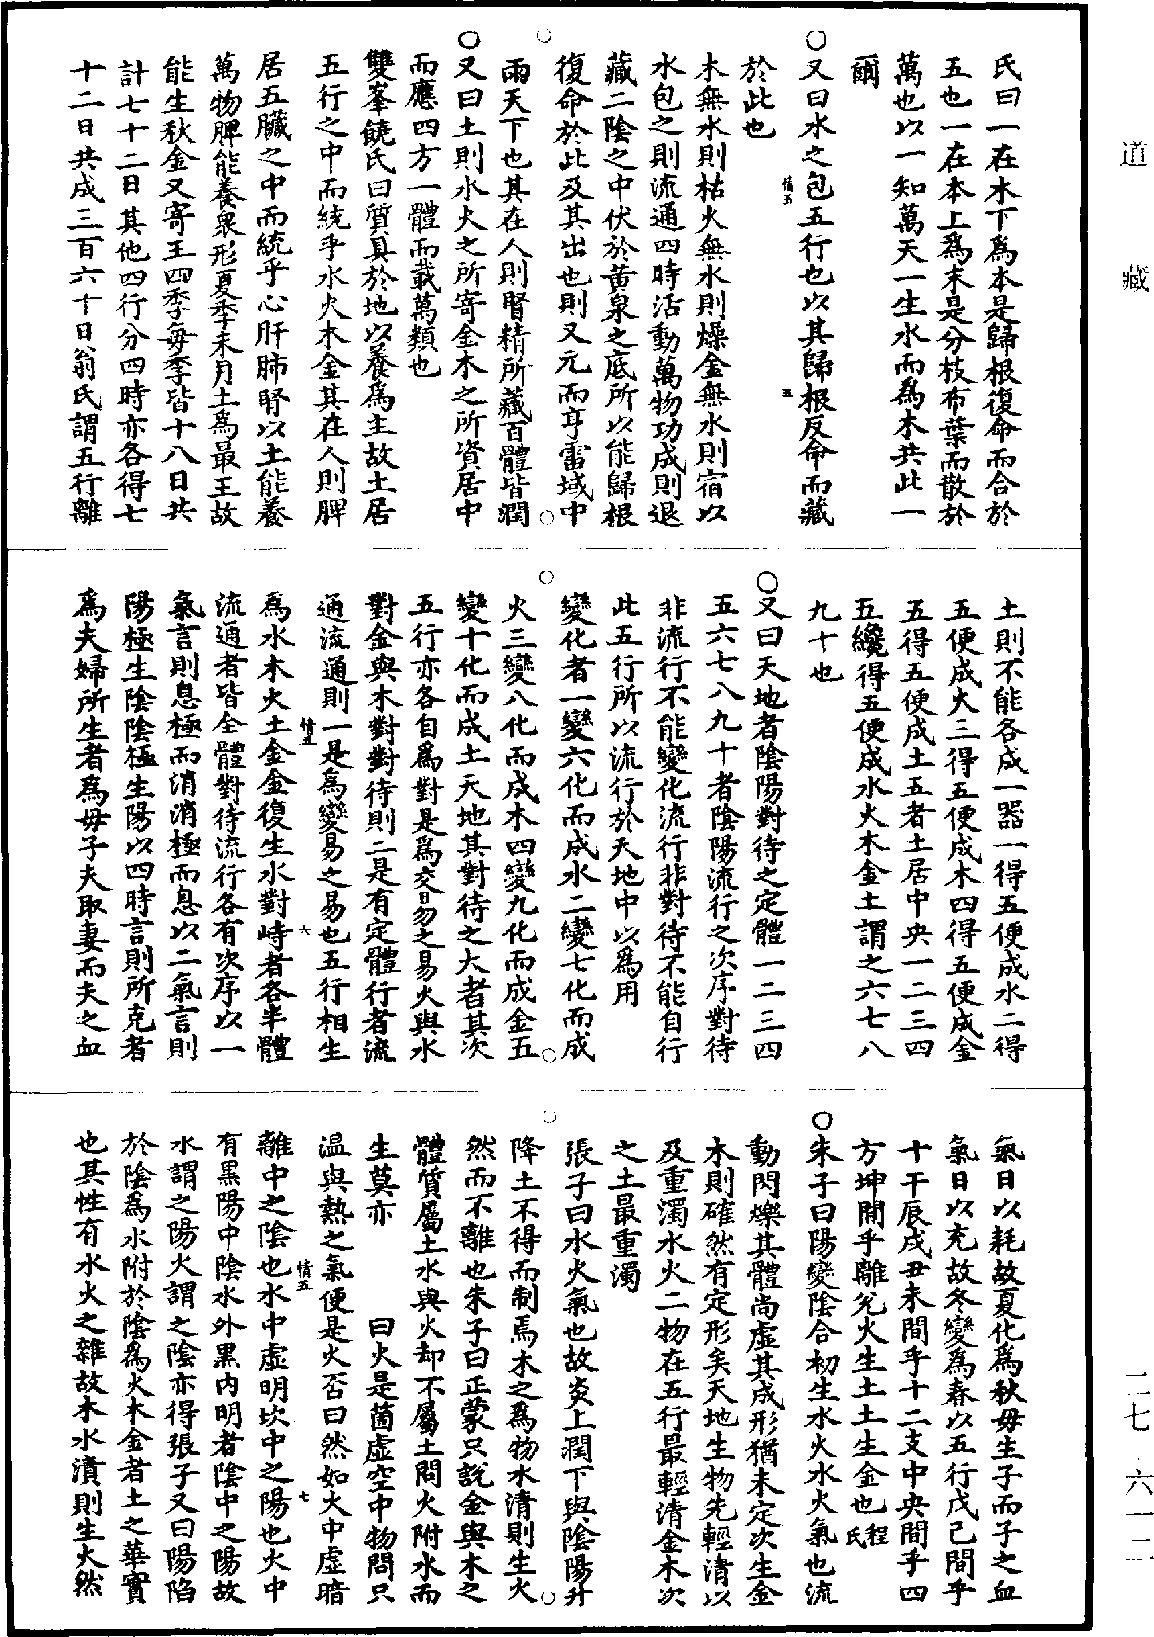 道藏
氏曰一在木下爲本是歸根復命而合於
五也一在本上爲末是分枝布葉而散於
萬也以一知萬天一生水而爲木共此一
爾
○又曰水之包五行也以其歸根反命而藏
於此也
木無水則枯火無水則燥金無水則宿以
水包之則流通四時活動萬物功成則退
藏二陰之中伏於黄泉之底所以能歸根
復命於此及其出也則又元而亨雷域中
雨天下也其在人則腎精所藏百體皆潤
○又曰土則水火之所寄金木之所資居中
而應四方一體而載萬類也
雙峯饒氏曰質具於地以養爲主故土居
五行之中而統乎水火木金其在人則脾
居五臟之中而統乎心肝肺腎以土能養
萬物脾能養衆形夏季未月土爲最王故
能生秋金又寄王四季每季皆十八日共
計七十二日其他四行分四時亦各得七
十二日共成三百六十日翁氏謂五行離
情五
五
土則不能各成一器一得五便成水二得
五便成火三得五便成木四得五便成金
五得五便成土五者土居中央一二三四
五纔得五便成水火木金土謂之六七八
九十也
○又曰天地者陰陽對待之定體一二三四
五六七八九十者陰陽流行之次序對待
非流行不能變化流行非對待不能自行
此五行所以流行於天地中以爲用
變化者一變六化而成水二變七化而成
火三變八化而成木四變九化而成金五
變十化而成土天地其對待之大者其次
五行亦各自爲對是爲交易之易火與水
對金與木對對待則二是有定體行者流
通流通則一是爲變易之易也五行相生
爲水木火土金金復生水對峙者各半體
流通者皆全體對待流行各有次序以一
氣言則息極而消消極而息以二氣言則
陽極生陰陰極生陽以四時言則所克者
爲夫婦所生者爲母子夫取妻而夫之血
情五
六
氣日以耗故夏化爲秋母生子而子之血
氣日以充故冬變爲春以五行戊己間乎
十干辰戌丑未間乎十二支中央間乎四
方坤間乎離兌火生土土生金也程氏
○朱子曰陽變陰合初生水火水火氣也流
動閃爍其體尚虛其成形猶未定次生金
木則確然有定形矣天地生物先輕清以
及重濁水火二物在五行最輕清金木次
之土最重濁
張子曰水火氣也故炎上潤下與陰陽升
降土不得而制焉木之爲物水清則生火
然而不離也朱子曰正蒙只說金與木之
體質屬土水與火却不屬土問火附水而
生莫亦　曰火是箇虛空中物問只
温與熱之氣便是火否曰然如大中虛暗
離中之陰也水中虛明坎中之陽也火中
有黑陽中陰水外黑内明者陰中之陽故
水謂之陽火謂之陰亦得張子又曰陽陷
於陰爲水附於陰爲火木金者土之華實
也其性有水火之雜故木水漬則生火然
情五
七
二七·六一二